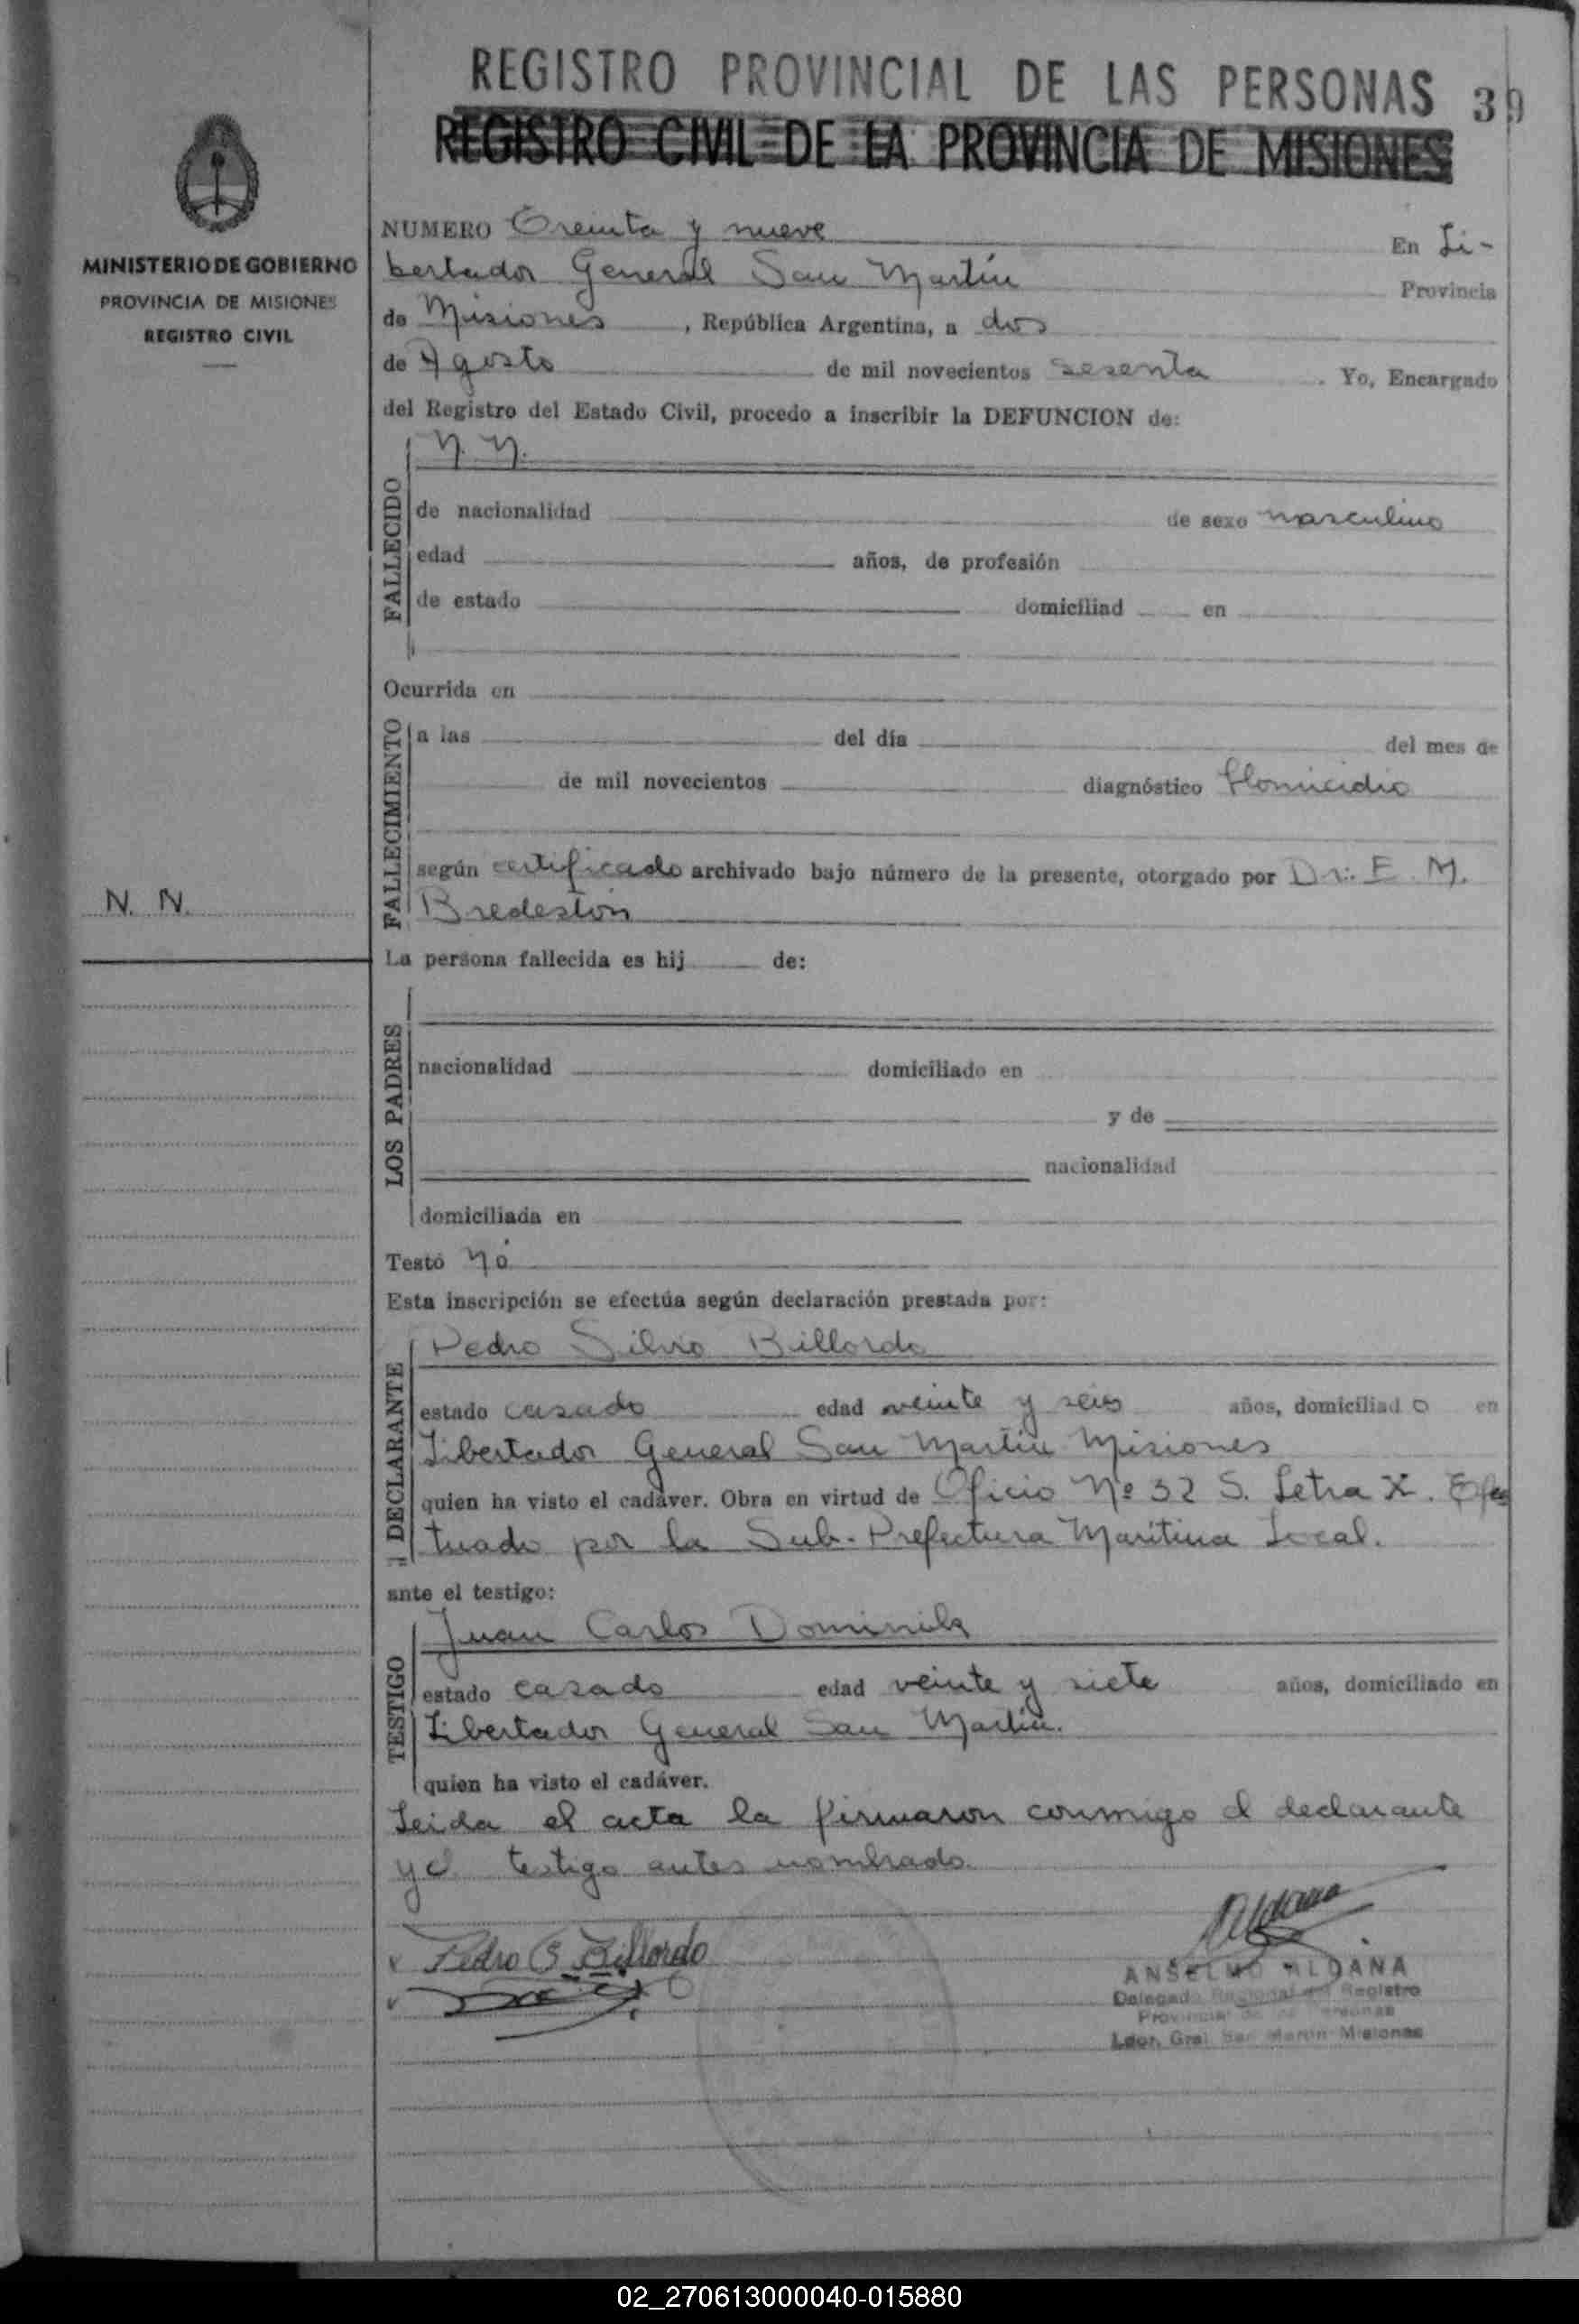 REGISTRO PROVINCIAL DE LAS PERSONAS 39
REGISTRO CIVIL DE LA PROVINCIA DE MISIONES
MINISTERIO DE GOBIERNO
PROVINCIA DE MISIONES
REGISTRO CIVIL
NUMERO Treinta y nueve En Li-
bertador General San Martín Provincia
de Misiones, República Argentina, a dos
de Agosto de mil novecientos sesenta. Yo, Encargado
del Registro del Estado Civil, procedo a inscribir la DEFUNCION de:
FALLECIDO
N. N.
de nacionalidad de sexo masculino
edad años, de profesión
de estado domiciliad en
Ocurrida en
FALLECIMIENTO
a las del día del mes de
de mil novecientos diagnóstico Homicidio
según certificado archivado bajo número de la presente, otorgado por Dr: E. M.
Bredeston
N. N.
La persona fallecida es hij de:
LOS PADRES
nacionalidad domiciliado en
y de
nacionalidad
domiciliada en
Testó nó
Esta inscripción se efectúa según declaración prestada por:
DECLARANTE
Pedro Silvio Billordo
estado casado edad veinte y seis años, domiciliado en
Libertador General San Martín Misiones
quien ha visto el cadáver. Obra en virtud de Oficio Nº 32 S. Letra X. Efec
tuado por la Sub-Prefectura Marítima Local.
ante el testigo:
TESTIGO
Juan Carlos Dominik
estado casado edad veinte y siete años, domiciliado en
Libertador General San Martín.
quien ha visto el cadáver.
Leida el acta la firmaron conmigo el declarante
y el testigo antes nombrado.
Pedro S Billordo
Aldana
ANSELMO ALDANA
Delegado Regional del Registro
Provincial de las Personas
Ldor. Gral San Martín Misiones
02_270613000040-015880